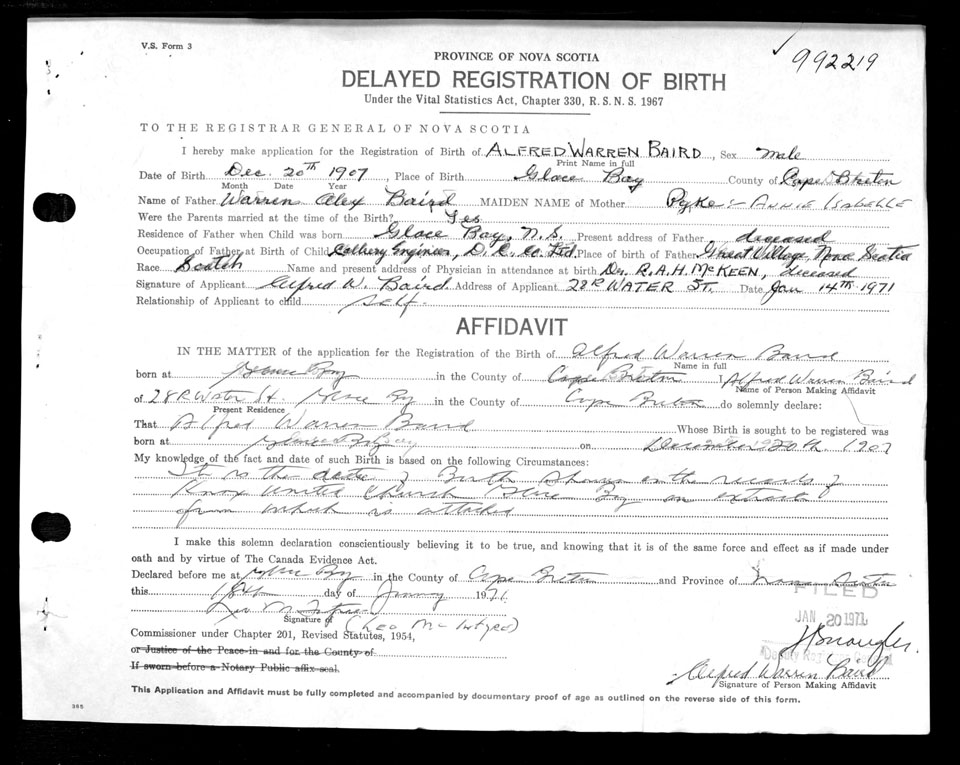 V.S. Form 3
PROVINCE OF NOVA SCOTIA
992219
DELAYED REGISTRATION OF BIRTH
Under the Vital Statistics Act, Chapter 330, R.S.N.S. 1967
TO THE REGISTRAR GENERAL OF NOVA SCOTIA
I hereby make application for the Registration of Birth of ALFRED WARREN BAIRD, Sex Male
Print Name in full
Date of Birth Dec. 20th 1907, Place of Birth Glace Bay County of Cape Breton
Month Date Year
Name of Father Warren Alex Baird MAIDEN NAME of Mother Pyke - ANNIE ISABELLE
Were the Parents married at the time of the Birth? Yes
Residence of Father when Child was born Glace Bay, N.S. Present address of Father deceased
Occupation of Father at Birth of Child Colliery Engineer, D.C. Co. Ltd. Place of birth of Father Great Village, Nova Scotia
Race Scotch Name and present address of Physician in attendance at birth Dr. R.A.H. McKEEN, deceased
Signature of Applicant Alfred W. Baird Address of Applicant 28R WATER ST. Date Jan 14TH 1971
Relationship of Applicant to child self.
AFFIDAVIT
IN THE MATTER of the application for the Registration of the Birth of Alfred Warren Baird
Name in full
born at Glace Bay in the County of Cape Breton I Alfred Warren Baird
Name of Person Making Affidavit
of 28R Water St. Glace Bay in the County of Cape Breton do solemnly declare:
Present Residence
That Alfred Warren Baird Whose Birth is sought to be registered was
born at Glace Bay on December 20th 1907
My knowledge of the fact and date of such Birth is based on the following Circumstances:
It is the date of Birth shown on the records of
Knox United Church Glace Bay an extract
from which is attached
I make this solemn declaration conscientiously believing it to be true, and knowing that it is of the same force and effect as if made under
oath and by virtue of The Canada Evidence Act.
Declared before me at Glace Bay in the County of Cape Breton and Province of Nova Scotia
this 18th day of January 1971
FILED
JAN 20 1971
Signature of (Leo McIntyre)
Commissioner under Chapter 201, Revised Statutes, 1954,
or Justice of the Peace in and for the County of
Deputy Registrar General
If sworn before a Notary Public affix seal.
Alfred Warren Baird
Signature of Person Making Affidavit
This Application and Affidavit must be fully completed and accompanied by documentary proof of age as outlined on the reverse side of this form.
365